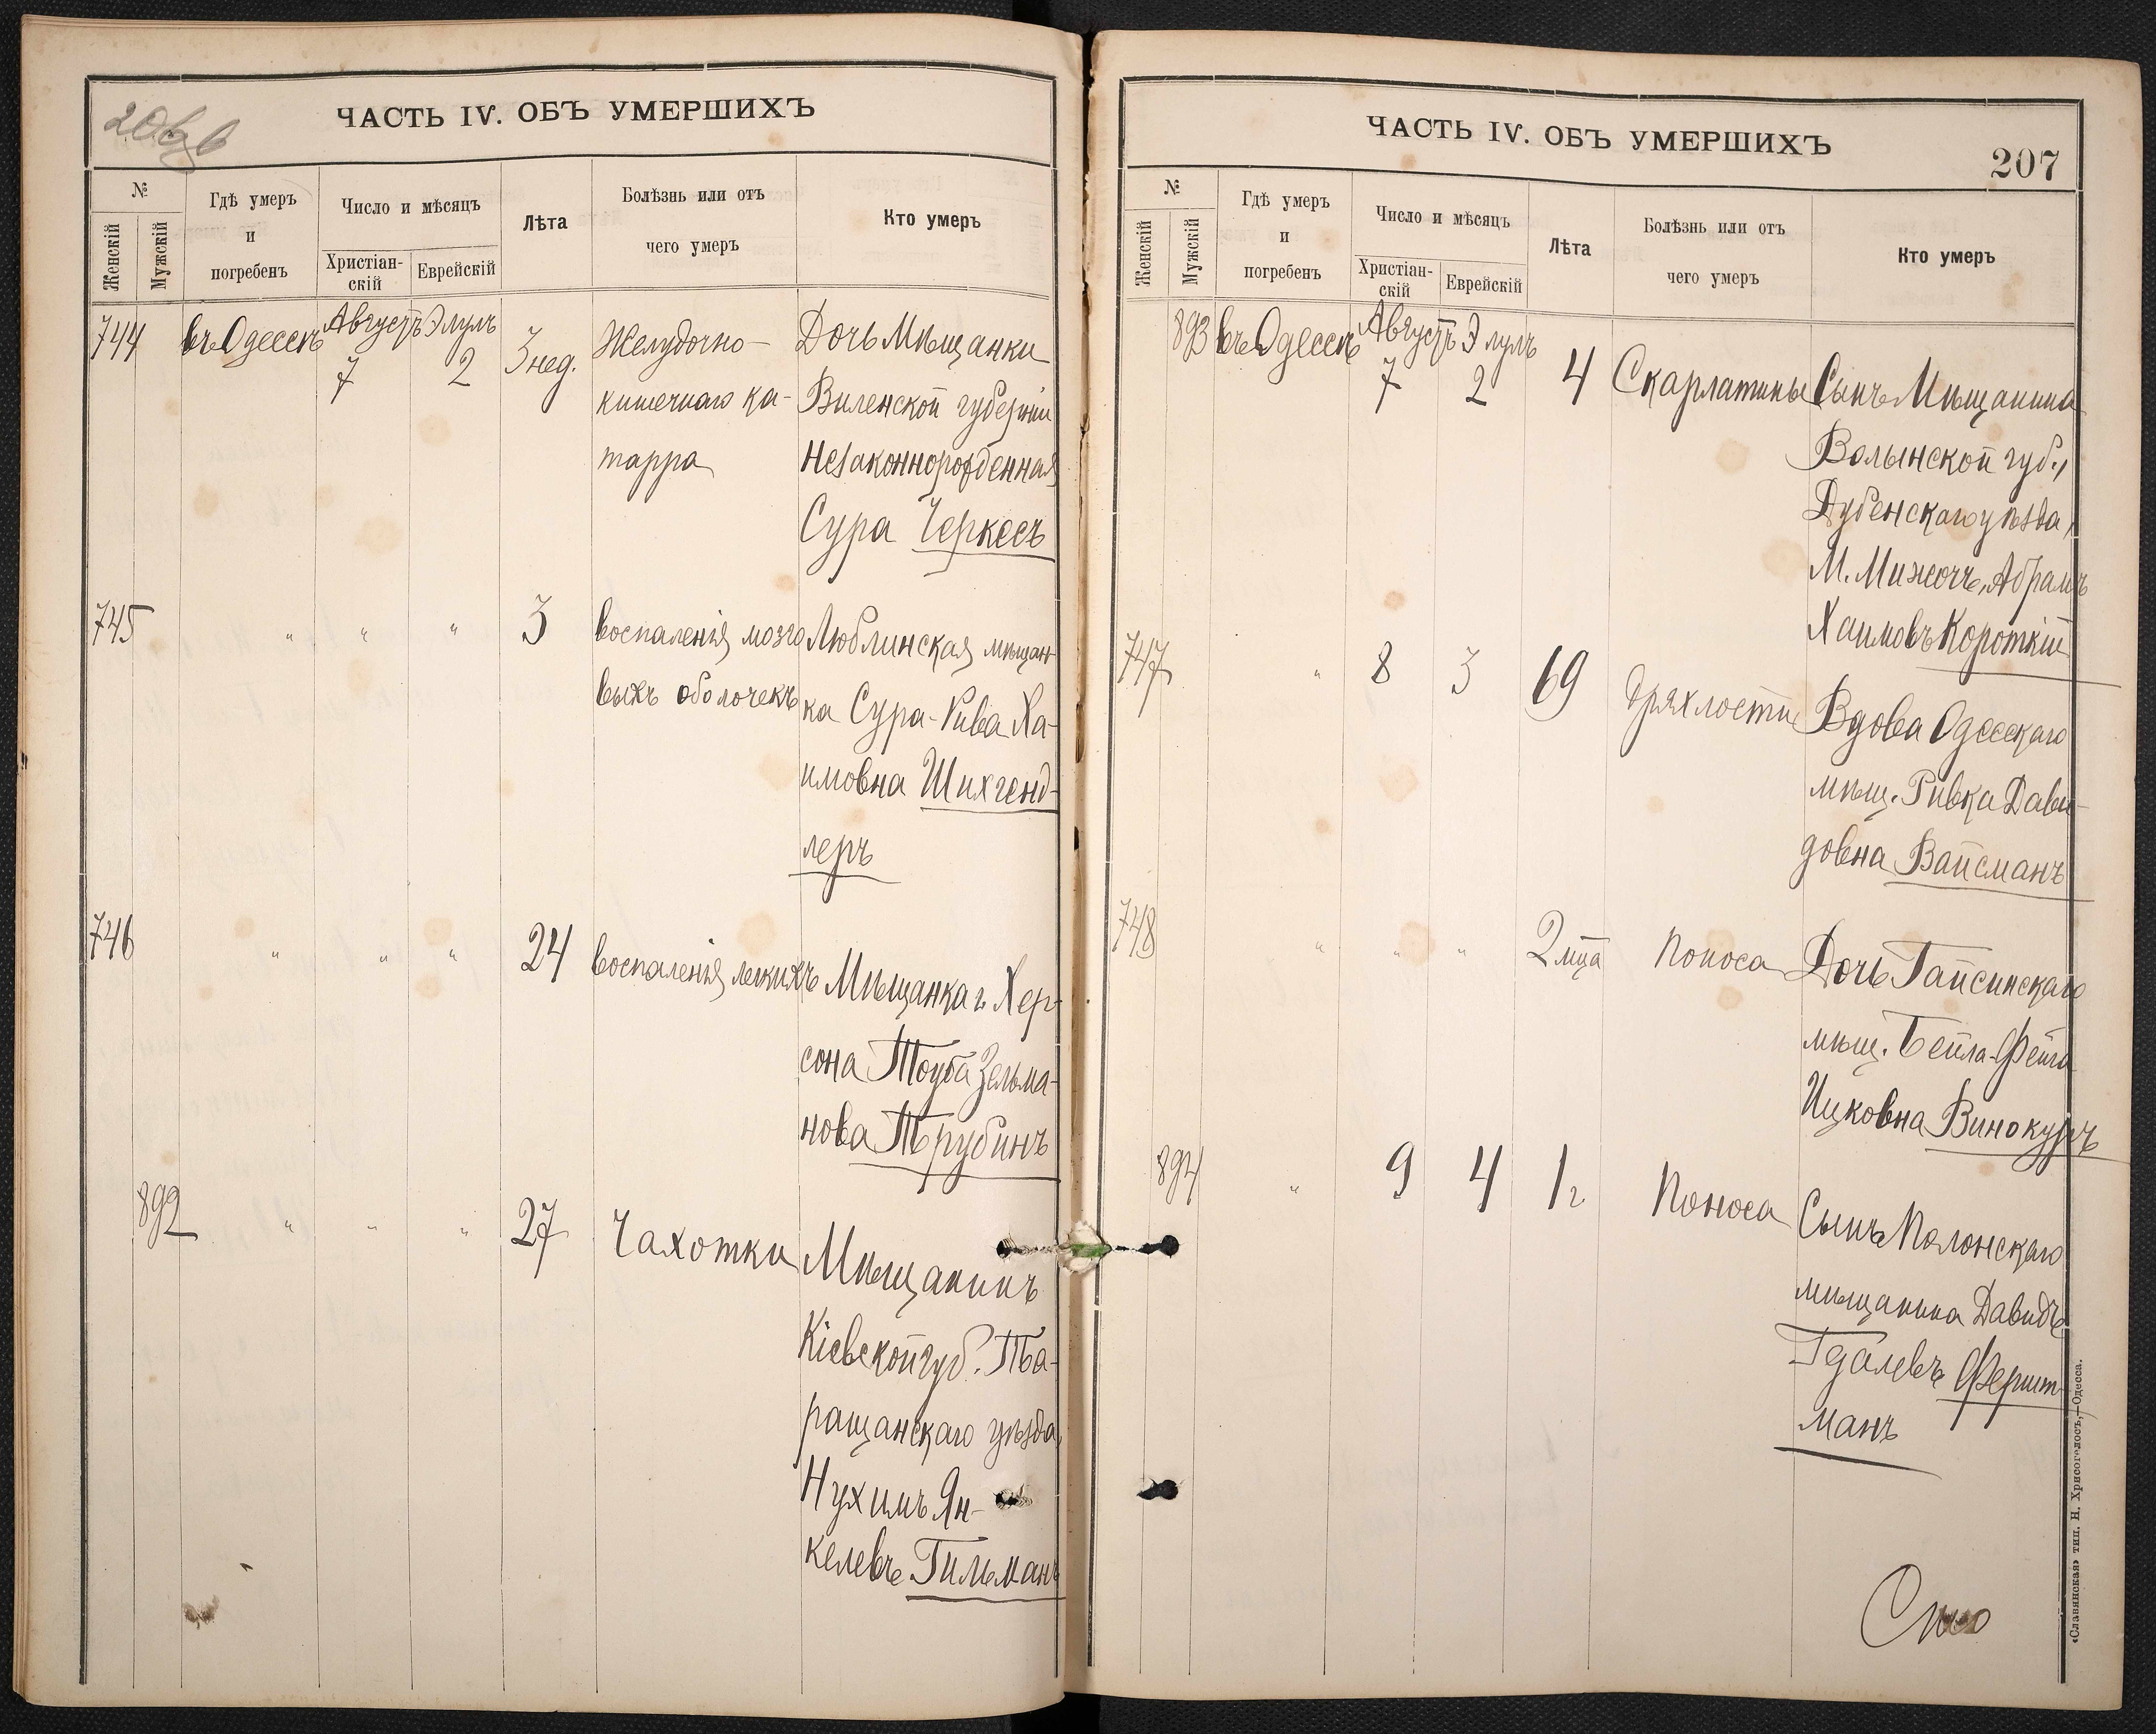 206
ЧАСТЬ IV. ОБЪ УМЕРШИХЪ
№
Женскій
Мужскій
Гдѣ умеръ
и
погребенъ
Число и мѣсяцъ
Христіан-
скій
Еврейскій
Лѣта
Болѣзнь или отъ
чего умеръ
Кто умеръ
744 въ Одессѣ Августъ 7 Элулъ 2 3 нед. Желудочно- Дочь Мѣщанки
кишечнаго ка- Виленской губерніи
тарра Незаконнорожденная
Сура Черкесъ
745 " " " 3 воспаленія мозго Люблинская мѣщан
выхъ оболочекъ ка Сура-Рива Ха-
имовна Шихгенд-
леръ
746 " " " 24 воспаленія легкихъ Мѣщанка г. Хер-
сона Тоуба Зельма-
нова Трубинъ
892 " " " 27 Чахотки Мѣщанинъ
Кіевской губ. Та-
ращанскаго уѣзда,
Нухимъ Ян-
келевъ Гильманъ
ЧАСТЬ IV. ОБЪ УМЕРШИХЪ
207
№
Женскій
Мужскій
Гдѣ умеръ
и
погребенъ
Число и мѣсяцъ
Христіан-
скій
Еврейскій
Лѣта
Болѣзнь или отъ
чего умеръ
Кто умеръ
893 въ Одессѣ Августъ 7 Элулъ 2 4 Скарлатины Сынъ Мѣщанина
Волынской губ.,
Дубенскаго уѣзда,
М. Мизочъ, Абрамъ
Хаимовъ Короткій
747 " 8 3 69 Дряхлости Вдова Одесскаго
мѣщ. Ривка Дави-
довна Вайсманъ
748 " " " 2 мца Поноса Дочь Гайсинскаго
мѣщ. Бейла-Фейга
Ицковна Винокуръ
894 " 9 4 1 г Поноса Сынъ Полонскаго
мѣщанина Давидъ
Гдалевъ Фершт-
манъ
«Славянская» тип. Н. Хрисогелосъ,—Одесса.